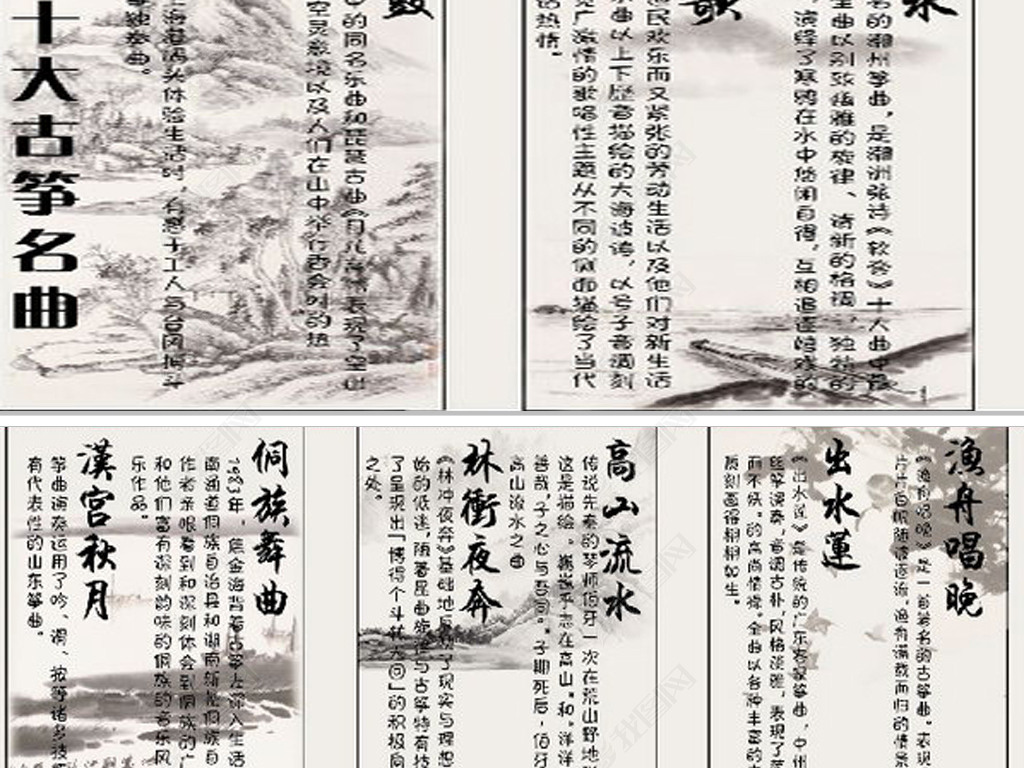 十大古筝名曲
的同名乐曲和琵琶古曲《月儿高》表现了空山
空灵意境以及人们在山中举行夜会时的热
上海港码头体验生活时，有感于工人与台风搏斗
筝独奏曲。
名的潮州筝曲，是潮州弦诗《软套》十大曲中最
全曲以别致优雅的旋律、清新的格调、独特的
，演绎了寒鸦在水中悠闲自得，互相追逐嬉戏的
渔民欢乐而又紧张的劳动生活以及他们对新生活
水曲以上下历音描绘的大海波涛，以号子音调刻
广激情的歌唱性主题从不同的侧面描绘了当代
的热情。
漁舟唱晚
《渔舟唱晚》是一首著名的古筝曲。表现
片片白帆随波逐流，渔者满载而归的情景
出水蓮
《出水莲》是传统的广东客家筝曲，中州
丝筝演奏，音调古朴，风格淡雅，表现了莲
而不妖"的高尚情操。全曲以各种丰富的
质刻画得栩栩如生。
高山流水
传说先秦的琴师伯牙一次在荒山野地弹
这是描绘"巍巍乎志在高山"和"洋洋
善哉，子之心与吾同。"子期死后，伯牙
高山流水之曲
林衝夜奔
《林冲夜奔》基础地反映了现实与理想
始的低迷，随着昆曲旋律与古筝特有技
了呈现出「博得个斗转天回」的积极同
之处。
侗族舞曲
1983年，焦金海背着古筝上深入生活
南通道侗族自治县和湖南新晃侗族自
作者亲眼看到和深刻体会到侗族的广
和他们富有深刻韵味的侗族的音乐风
乐作品。"
漢宫秋月
筝曲演奏运用了吟、滑、按等诸多技
有代表性的山东筝曲。